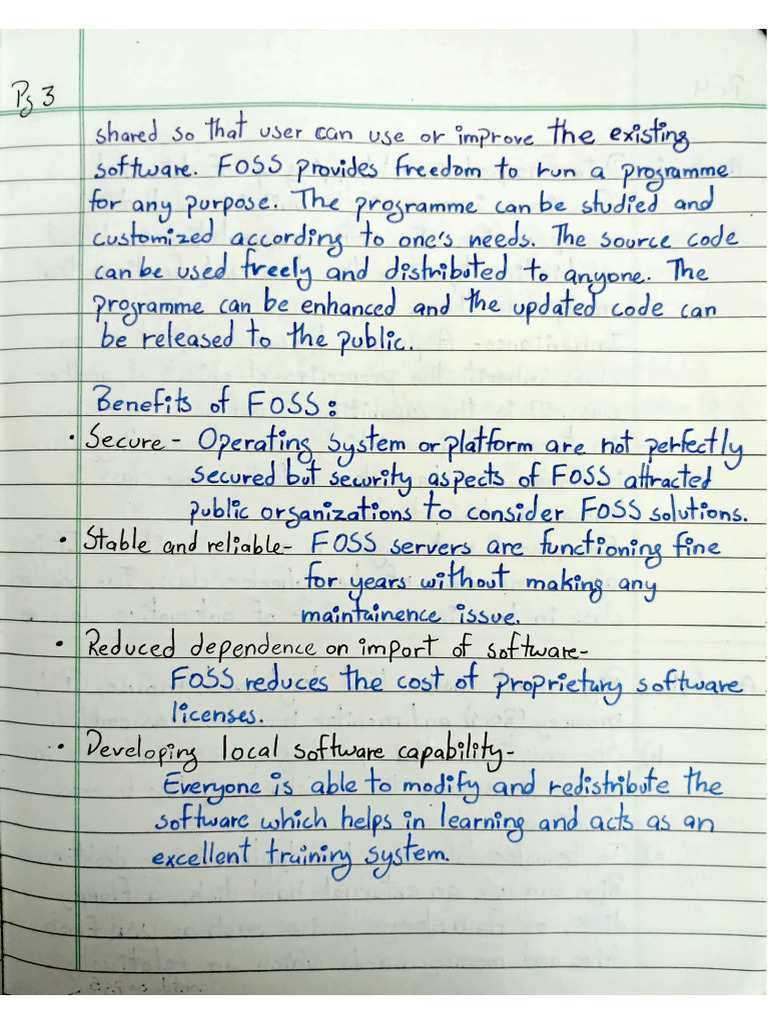 Pg 3
shared so that user can use or improve the existing
software. FOSS provides freedom to run a programme
for any purpose. The programme can be studied and
customized according to one's needs. The source code
can be used freely and distributed to anyone. The
programme can be enhanced and the updated code can
be released to the public.
Benefits of FOSS:
• Secure - Operating system or platform are not perfectly
secured but security aspects of FOSS attracted
public organizations to consider FOSS solutions.
• Stable and reliable - FOSS servers are functioning fine
for years without making any
maintainence issue.
• Reduced dependence on import of software-
FOSS reduces the cost of proprietury software
licenses.
• Developing local software capability-
Everyone is able to modify and redistribute the
software which helps in learning and acts as an
excellent training system.